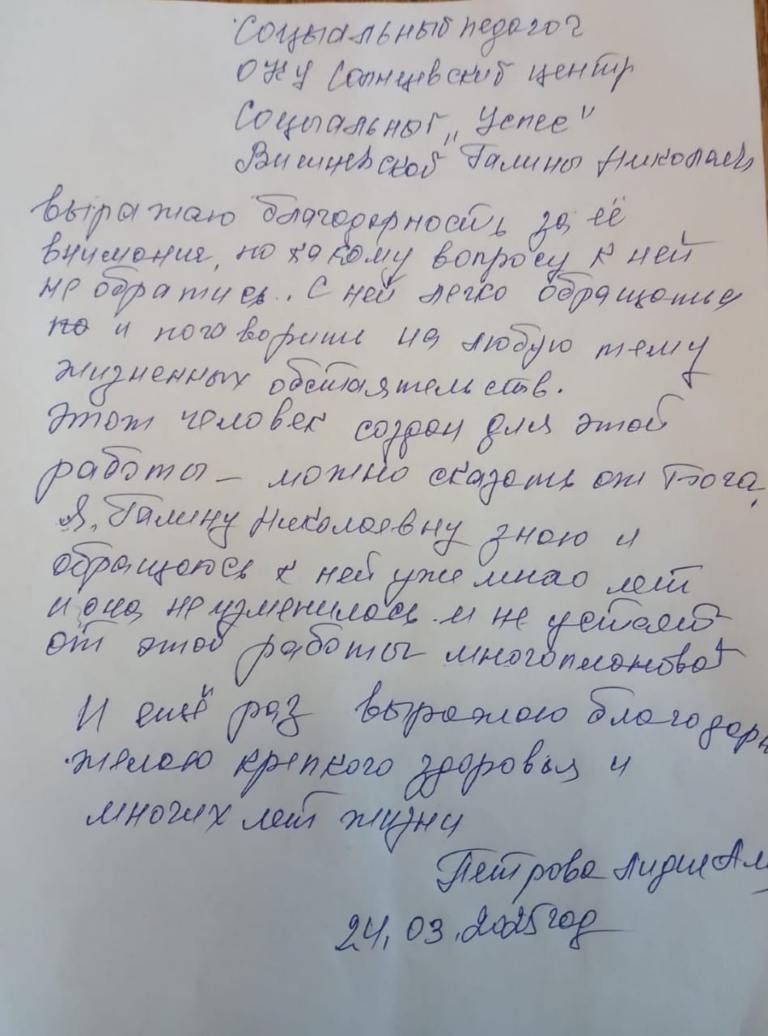 Социальный педагог
ОКУ Солнцевский центр
Социальной „Успес"
Вишневской Галины Николаевн
выражаю благодарность за её
внимание, по какому вопросу к ней
не обратись. С ней легко обращаться
по и поговорить на любую тему
жизненных обстаятельств.
Этот человек создан для этой
работы – можно сказать от Бога,
Я, Галину Николаевну знаю и
обращаюсь к ней уже мнао лет
и она не изменилась и не устаёт
от этой работы многоплановой
И ещё раз выражаю благодарн
желаю крепкого здоровья и
многих лет жизни
Петрова Лидия Ал
24.03.2025 год